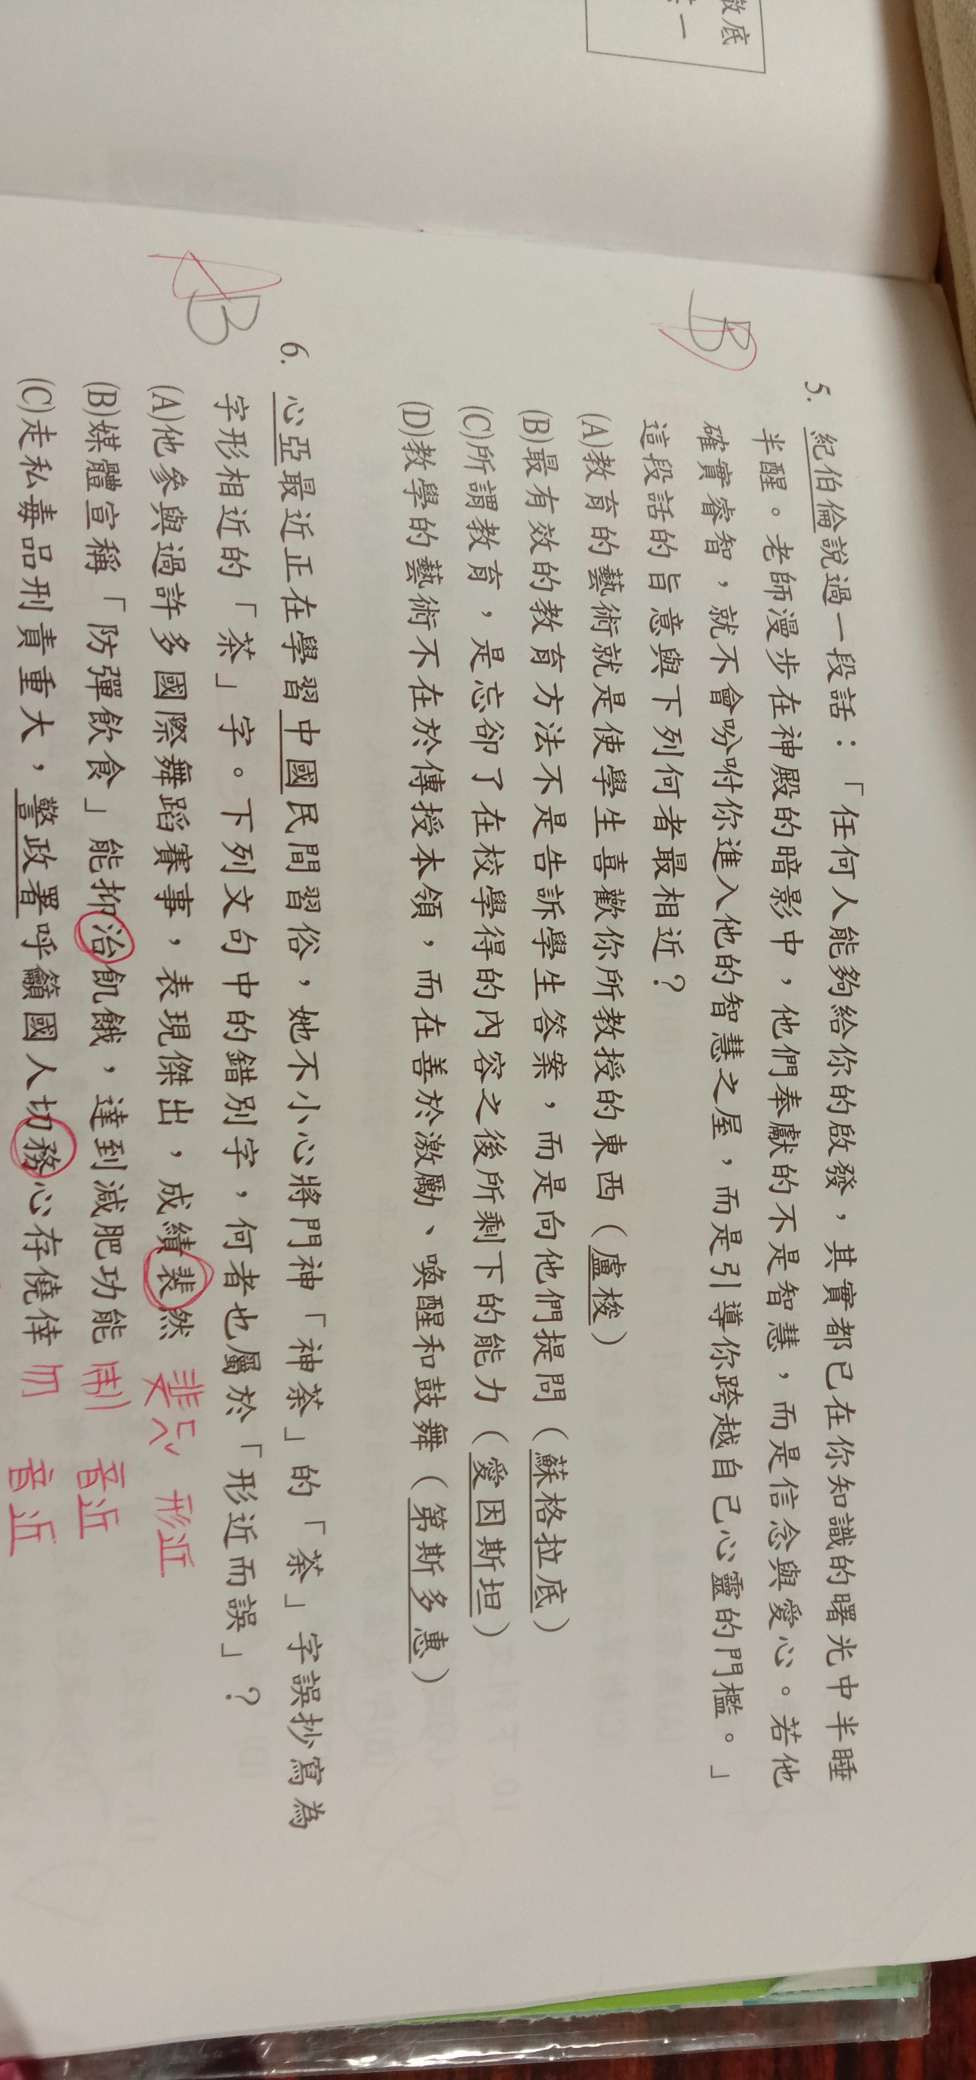 徹底
一
B
5. 紀伯倫說過一段話：「任何人能夠給你的啟發，其實都已在你知識的曙光中半睡
半醒。老師漫步在神殿的暗影中，他們奉獻的不是智慧，而是信念與愛心。若他
確實睿智，就不會吩咐你進入他的智慧之屋，而是引導你跨越自己心靈的門檻。」
這段話的旨意與下列何者最相近？
(A)教育的藝術就是使學生喜歡你所教授的東西（盧梭）
(B)最有效的教育方法不是告訴學生答案，而是向他們提問（蘇格拉底）
(C)所謂教育，是忘卻了在校學得的內容之後所剩下的能力（愛因斯坦）
(D)教學的藝術不在於傳授本領，而在善於激勵、喚醒和鼓舞（第斯多惠）
AB
6. 心亞最近正在學習中國民間習俗，她不小心將門神「神荼」的「荼」字誤抄寫為
字形相近的「茶」字。下列文句中的錯別字，何者也屬於「形近而誤」？
(A)他參與過許多國際舞蹈賽事，表現傑出，成績裴然 斐 形近
(B)媒體宣稱「防彈飲食」能抑治飢餓，達到減肥功能 制 音近
(C)走私毒品刑責重大，警政署呼籲國人切務心存僥倖 勿 音近